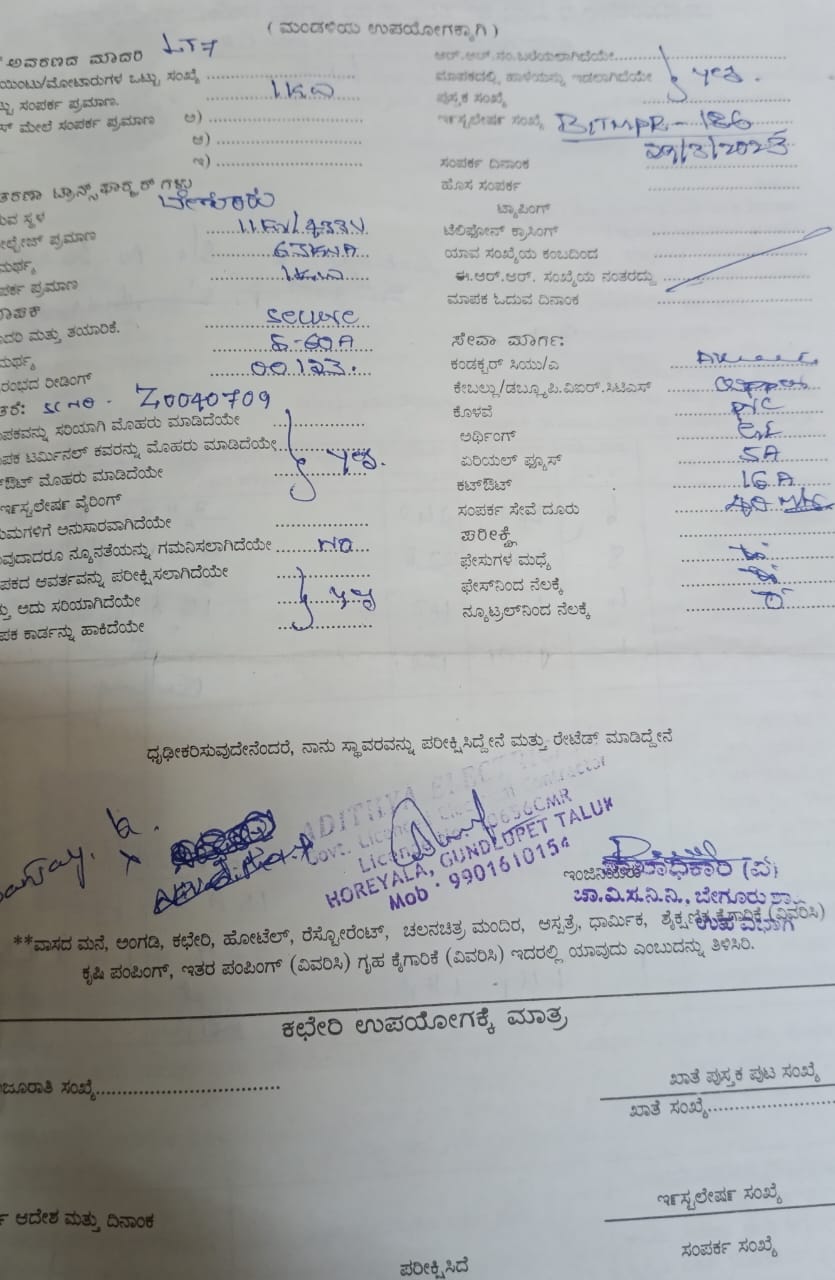 ( ಮಂಡಳಿಯ ಉಪಯೋಗಕ್ಕಾಗಿ )
ಆವರಣದ ಮಾದರಿ LT7
ಯಿಂಟು/ಮೋಟಾರುಗಳ ಒಟ್ಟು ಸಂಖ್ಯೆ
ಟ್ಟು ಸಂಪರ್ಕ ಪ್ರಮಾಣ. 1KW
ಸ್ ಮೇಲೆ ಸಂಪರ್ಕ ಪ್ರಮಾಣ ಅ)
ಆ)
ಇ)
ತರಣಾ ಟ್ರಾನ್ಸ್‌ಫಾರ್ಮರ್‌ಗಳು
ರುವ ಸ್ಥಳ ಬೇಗೂರು
ೋಲ್ಟೇಜ್ ಪ್ರಮಾಣ 11KV/433V
ಮರ್ಥ್ಯ 63KVA
ಪರ್ಕ ಪ್ರಮಾಣ 1KW
ಮಾಪಕ
ಾದರಿ ಮತ್ತು ತಯಾರಿಕೆ. secure
ಮರ್ಥ್ಯ 5-60A
ರಂಭದ ರೀಡಿಂಗ್ 00123.
ತರೆ: SL NO - Z0040709
ಾಪಕವನ್ನು ಸರಿಯಾಗಿ ಮೊಹರು ಮಾಡಿದೆಯೇ
ಾಪಕ ಟರ್ಮಿನಲ್ ಕವರನ್ನು ಮೊಹರು ಮಾಡಿದೆಯೇ
ಟ್‌ಔಟ್ ಮೊಹರು ಮಾಡಿದೆಯೇ yes.
ಇನ್‌ಸ್ಟಲೇಷನ್ ವೈರಿಂಗ್
ಯಮಗಳಿಗೆ ಅನುಸಾರವಾಗಿದೆಯೇ
ಾವುದಾದರೂ ನ್ಯೂನತೆಯನ್ನು ಗಮನಿಸಲಾಗಿದೆಯೇ NO
ಾಪಕದ ಆವರ್ತವನ್ನು ಪರೀಕ್ಷಿಸಲಾಗಿದೆಯೇ
ತ್ತು ಅದು ಸರಿಯಾಗಿದೆಯೇ yes
ಾಪಕ ಕಾರ್ಡನ್ನು ಹಾಕಿದೆಯೇ
ಆರ್.ಆರ್.ನಂ.ಬರೆಯಲಾಗಿದೆಯೇ
ಮಾಪಕದಲ್ಲಿ ಹಾಳೆಯನ್ನು ಇಡಲಾಗಿದೆಯೇ yes.
ಪುಸ್ತಕ ಸಂಖ್ಯೆ
ಇನ್‌ಸ್ಟಲೇಷನ್ ಸಂಖ್ಯೆ BLTMPR-186
ಸಂಪರ್ಕ ದಿನಾಂಕ 29/3/2023
ಹೊಸ ಸಂಪರ್ಕ
ಟ್ಯಾಪಿಂಗ್
ಟೆಲಿಫೋನ್ ಕ್ರಾಸಿಂಗ್
ಯಾವ ಸಂಖ್ಯೆಯ ಕಂಬದಿಂದ
ಈ.ಆರ್.ಆರ್. ಸಂಖ್ಯೆಯ ನಂತರದ್ದು
ಮಾಪಕ ಓದುವ ದಿನಾಂಕ
ಸೇವಾ ಮಾರ್ಗ:
ಕಂಡಕ್ಟರ್ ಸಿಯು/ಎ
ಕೇಬಲ್ಲು/ಡಬ್ಲ್ಯೂ.ಪಿ.ವಿಐಆರ್.ಸಿಟಿಎಸ್
ಕೊಳವೆ PVC
ಅರ್ಥಿಂಗ್
ಏರಿಯಲ್ ಫ್ಯೂಸ್ 5A
ಕಟ್‌ಔಟ್ 16A
ಸಂಪರ್ಕ ಸೇವೆ ದೂರು
ಪರೀಕ್ಷೆ
ಫೇಸುಗಳ ಮಧ್ಯೆ
ಫೇಸ್‌ನಿಂದ ನೆಲಕ್ಕೆ
ನ್ಯೂಟ್ರಲ್‌ನಿಂದ ನೆಲಕ್ಕೆ
ಧೃಢೀಕರಿಸುವುದೇನೆಂದರೆ, ನಾನು ಸ್ಥಾವರವನ್ನು ಪರೀಕ್ಷಿಸಿದ್ದೇನೆ ಮತ್ತು ರೇಟೆಡ್ ಮಾಡಿದ್ದೇನೆ
ADITHYA
Govt. Licenced Electrical Contractor
HOREYALA, GUNDLUPET TALUK
Mob - 9901610154
ಚಾ.ವಿ.ಸ.ನಿ.ನಿ., ಬೇಗೂರು ಶಾ
ಉಪ ವಿಭಾಗ
**ವಾಸದ ಮನೆ, ಅಂಗಡಿ, ಕಛೇರಿ, ಹೋಟೆಲ್, ರೆಸ್ಟೋರೆಂಟ್, ಚಲನಚಿತ್ರ ಮಂದಿರ, ಆಸ್ಪತ್ರೆ, ಧಾರ್ಮಿಕ, ಶೈಕ್ಷಣಿಕ ಕೈಗಾರಿಕೆ (ವಿವರಿಸಿ)
ಕೃಷಿ ಪಂಪಿಂಗ್, ಇತರ ಪಂಪಿಂಗ್ (ವಿವರಿಸಿ) ಗೃಹ ಕೈಗಾರಿಕೆ (ವಿವರಿಸಿ) ಇದರಲ್ಲಿ ಯಾವುದು ಎಂಬುದನ್ನು ತಿಳಿಸಿರಿ.
ಕಛೇರಿ ಉಪಯೋಗಕ್ಕೆ ಮಾತ್ರ
ಜೂರಾತಿ ಸಂಖ್ಯೆ
ಖಾತೆ ಪುಸ್ತಕ ಪುಟ ಸಂಖ್ಯೆ
ಖಾತೆ ಸಂಖ್ಯೆ
ಆದೇಶ ಮತ್ತು ದಿನಾಂಕ
ಇನ್‌ಸ್ಟಲೇಷನ್ ಸಂಖ್ಯೆ
ಸಂಪರ್ಕ ಸಂಖ್ಯೆ
ಪರೀಕ್ಷಿಸಿದೆ